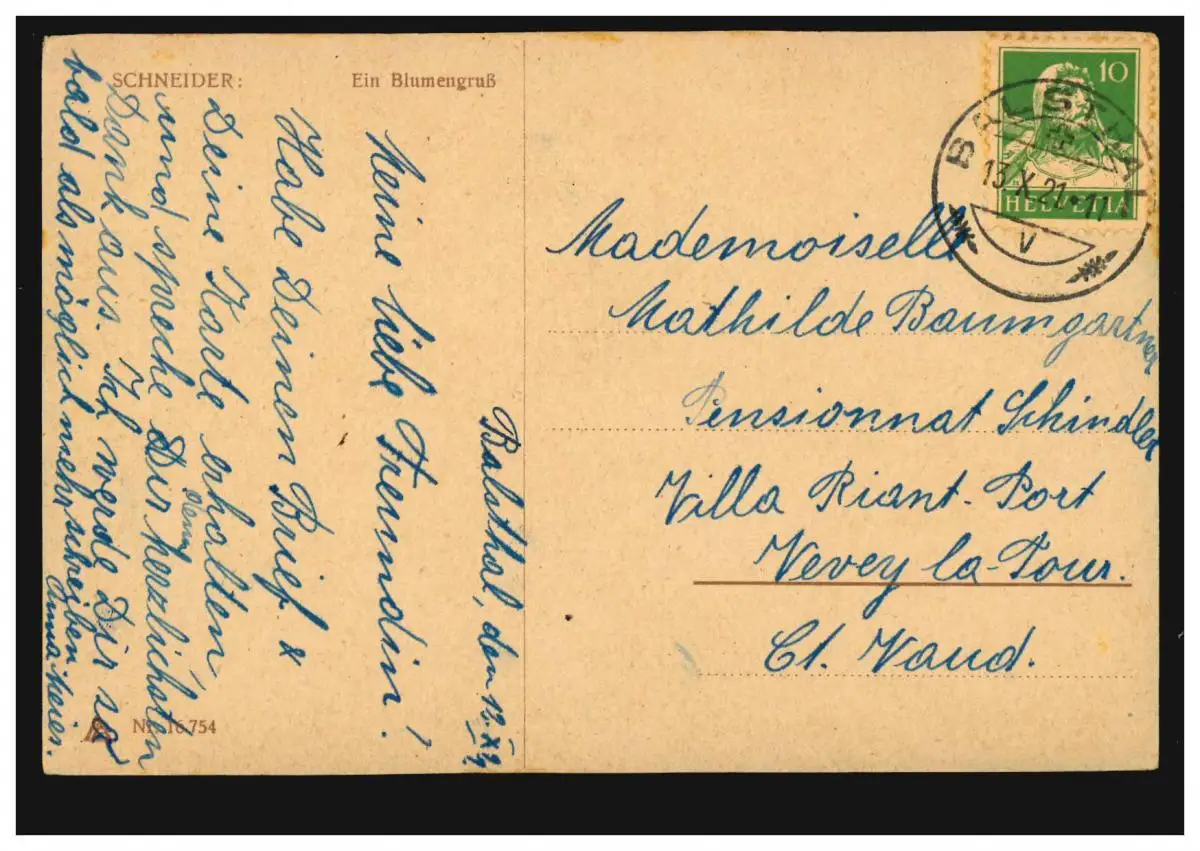 SCHNEIDER: Ein Blumengruß
Balsthal, den 12. X
Meine liebe Freundin!
Habe Deinen Brief &
Deine Karte erhalten
und spreche Dir den herzlichsten
Dank aus. Ich werde Dir so
bald als möglich mehr schreiben
Anna Meier.
Nr. 16.754
10
HELVETIA
BALSTHAL
13.X.21.-11
V
Mademoiselle
Mathilde Baumgartner
Pensionnat Schindler
Villa Riant-Port
Vevey la-Tour.
Ct. Vaud.